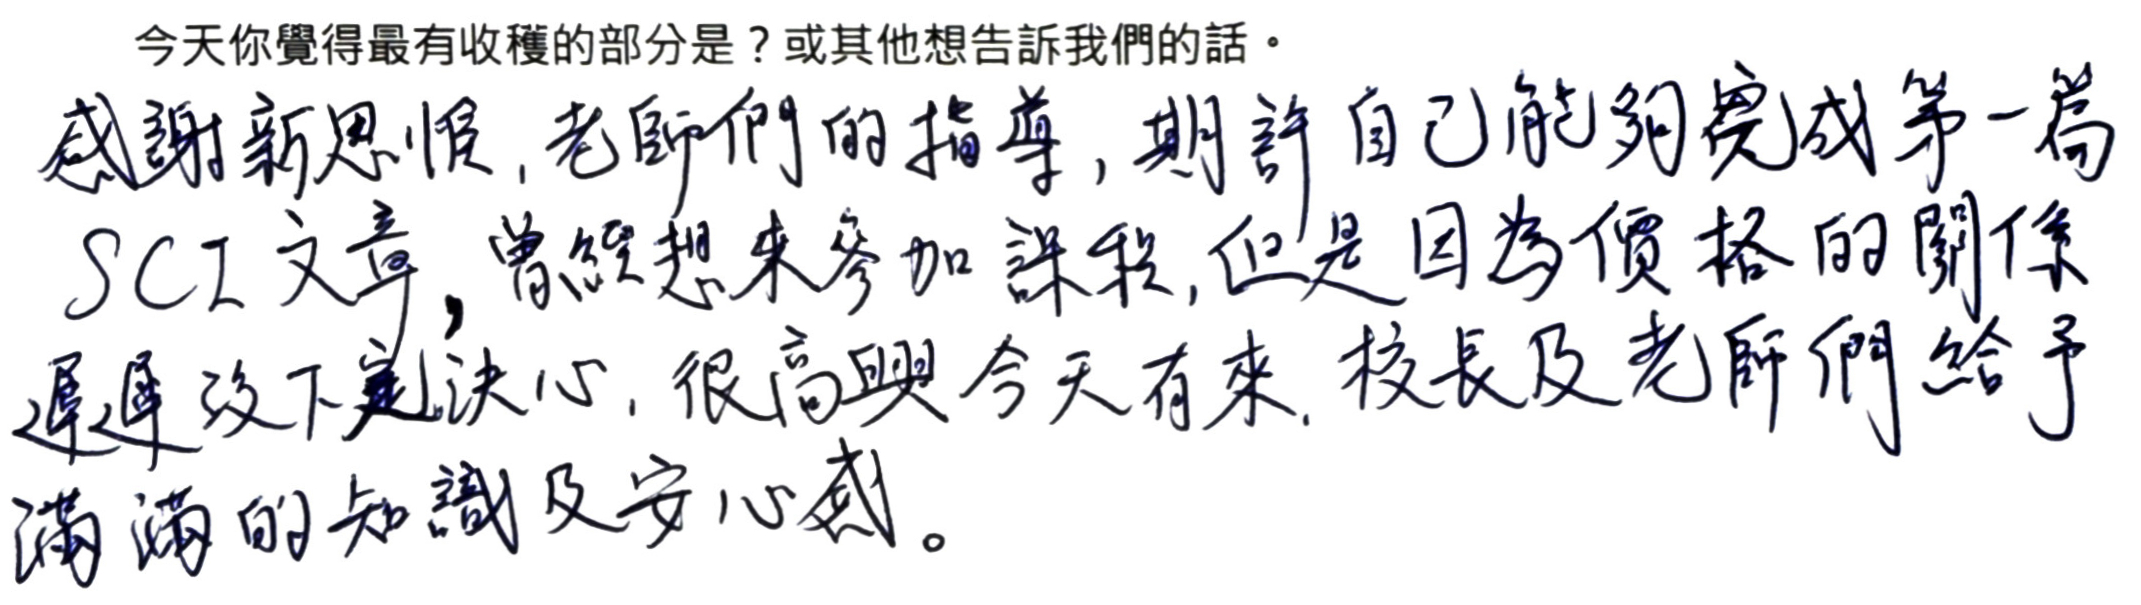 今天你覺得最有收穫的部分是？或其他想告訴我們的話。
感謝新思惟，老師們的指導，期許自己能夠完成第一篇
SCI文章，曾經想來參加課程，但是因為價格的關係
遲遲沒下定決心，很高興今天有來，校長及老師們給予
滿滿的知識及安心感。